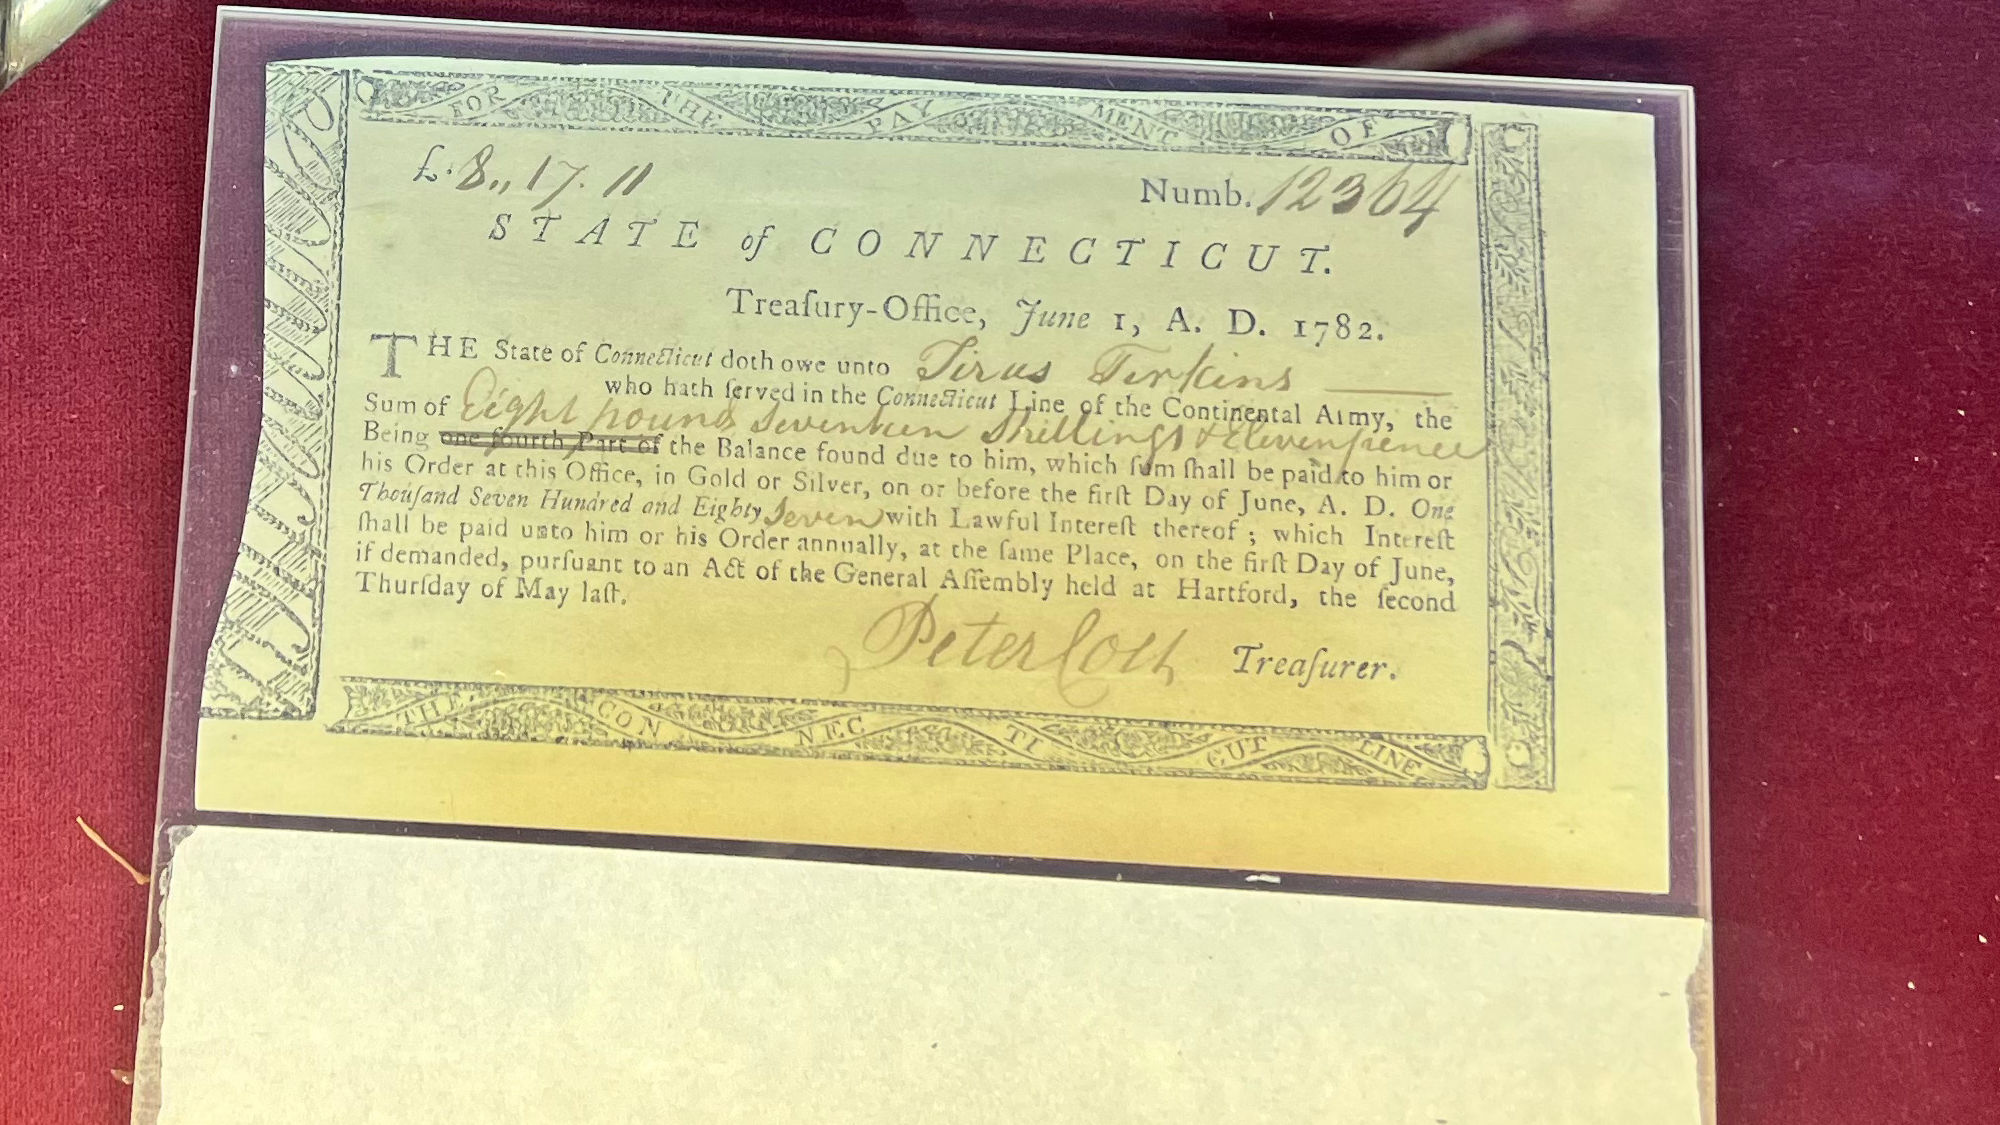 FOR THE PAY MENT OF
£.8,, 17. 11
Numb. 12364
STATE of CONNECTICUT.
Treaſury-Office, June 1, A. D. 1782.
THE State of Connecticut doth owe unto
who hath ſerved in the Connecticut Line of the Continental Army, the
Sum of Eight pounds Seventeen Shillings & Elevenpence
Being one fourth Part of the Balance found due to him, which ſum ſhall be paid to him or
his Order at this Office, in Gold or Silver, on or before the firſt Day of June, A. D. One
Thouſand Seven Hundred and Eighty Seven with Lawful Intereſt thereof ; which Intereſt
ſhall be paid unto him or his Order annually, at the ſame Place, on the firſt Day of June,
if demanded, purſuant to an Act of the General Aſſembly held at Hartford, the ſecond
Thurſday of May laſt.
Peter Colt Treaſurer.
THE CON NEC TI CUT LINE